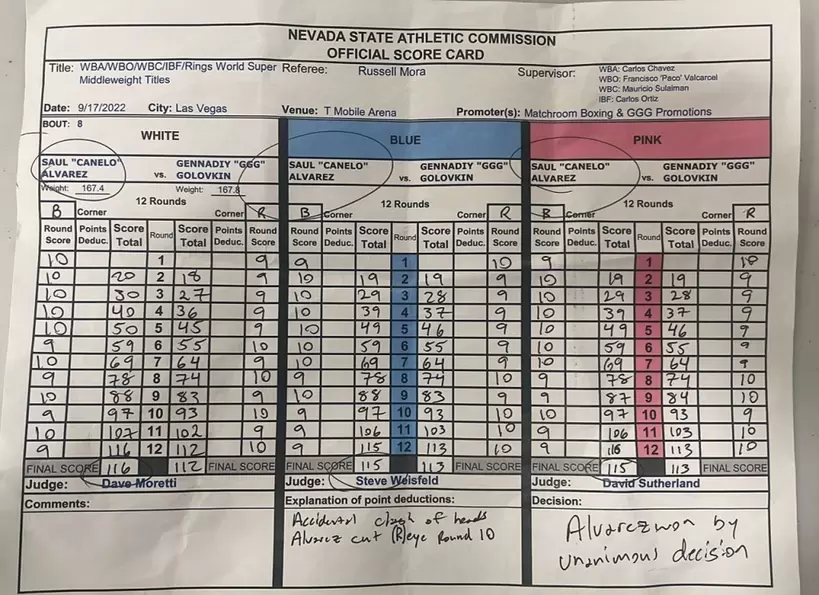 NEVADA STATE ATHLETIC COMMISSION
OFFICIAL SCORE CARD
Title: WBA/WBO/WBC/IBF/Rings World Super Middleweight Titles
Referee: Russell Mora
Supervisor: WBA: Carlos Chavez
WBO: Francisco 'Paco' Valcarcel
WBC: Mauricio Sulaiman
IBF: Carlos Ortiz
Date: 9/17/2022 City: Las Vegas Venue: T Mobile Arena Promoter(s): Matchroom Boxing & GGG Promotions
BOUT: 8
WHITE BLUE PINK
SAUL "CANELO" ALVAREZ vs. GENNADIY "GGG" GOLOVKIN SAUL "CANELO" ALVAREZ vs. GENNADIY "GGG" GOLOVKIN SAUL "CANELO" ALVAREZ vs. GENNADIY "GGG" GOLOVKIN
Weight: 167.4 Weight: 167.8
12 Rounds 12 Rounds 12 Rounds
B Corner Corner R B Corner Corner R B Corner Corner R
Round Score Points Deduc. Score Total Round Score Total Points Deduc. Round Score Round Score Points Deduc. Score Total Round Score Total Points Deduc. Round Score Round Score Points Deduc. Score Total Round Score Total Points Deduc. Round Score
10 1 9 9 1 10 9 1 10
10 20 2 18 9 10 19 2 19 9 10 19 2 19 9
10 30 3 27 9 10 29 3 28 9 10 29 3 28 9
10 40 4 36 9 10 39 4 37 9 10 39 4 37 9
10 50 5 45 9 10 49 5 46 9 10 49 5 46 9
9 59 6 55 10 10 59 6 55 9 10 59 6 55 9
10 69 7 64 9 10 69 7 64 9 10 69 7 64 9
9 78 8 74 10 9 78 8 74 10 9 78 8 74 10
10 88 9 83 9 10 88 9 83 9 9 87 9 84 10
9 97 10 93 10 9 97 10 93 10 10 97 10 93 9
10 107 11 102 9 9 106 11 103 10 9 106 11 103 10
9 116 12 112 10 9 115 12 113 10 9 12 113 10
FINAL SCORE 116 112 FINAL SCORE FINAL SCORE 115 113 FINAL SCORE FINAL SCORE 115 113 FINAL SCORE
Judge: Dave Moretti Judge: Steve Weisfeld Judge: David Sutherland
Comments: Explanation of point deductions: Decision:
Accidental clash of heads
Alvarez cut (R) eye Round 10
Alvarez won by
unanimous decision